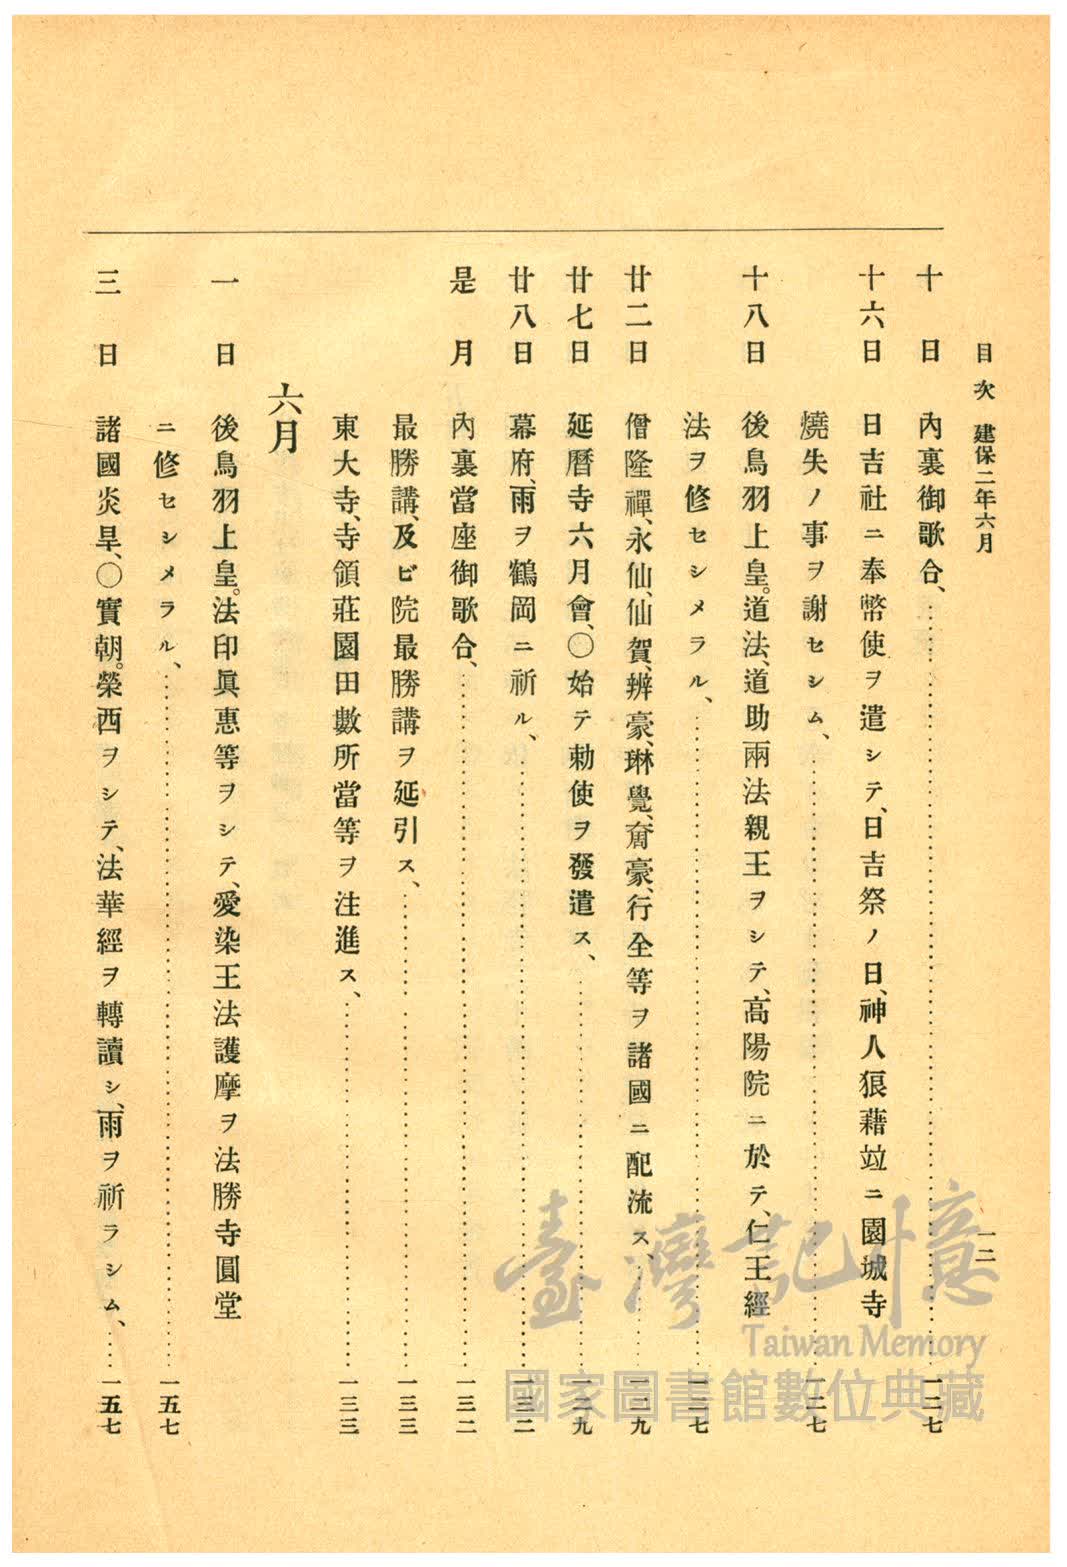 目次　建保二年六月
一二
十　日　內裏御歌合、……一二七
十六日　日吉社ニ奉幣使ヲ遣シテ、日吉祭ノ日、神人狼藉竝ニ園城寺
燒失ノ事ヲ謝セシム、……一二七
十八日　後鳥羽上皇。道法、道助兩法親王ヲシテ、高陽院ニ於テ、仁王經
法ヲ修セシメラル、……一二七
廿二日　僧隆禪、永仙、仙賀、辨豪、琳覺、奝豪、行全等ヲ諸國ニ配流ス、……一二九
廿七日　延曆寺六月會、〇始テ勅使ヲ發遣ス、……一二九
廿八日　幕府、雨ヲ鶴岡ニ祈ル、……一三二
是　月　內裏當座御歌合、……一三二
最勝講、及ビ院最勝講ヲ延引ス、……一三三
東大寺、寺領莊園田數所當等ヲ注進ス、……一三三
六月
一　日　後鳥羽上皇。法印眞惠等ヲシテ、愛染王法護摩ヲ法勝寺圓堂
ニ修セシメラル、……一五七
三　日　諸國炎旱、〇實朝。榮西ヲシテ、法華經ヲ轉讀シ、雨ヲ祈ラシム、……一五七
臺灣記憶
Taiwan Memory
國家圖書館數位典藏